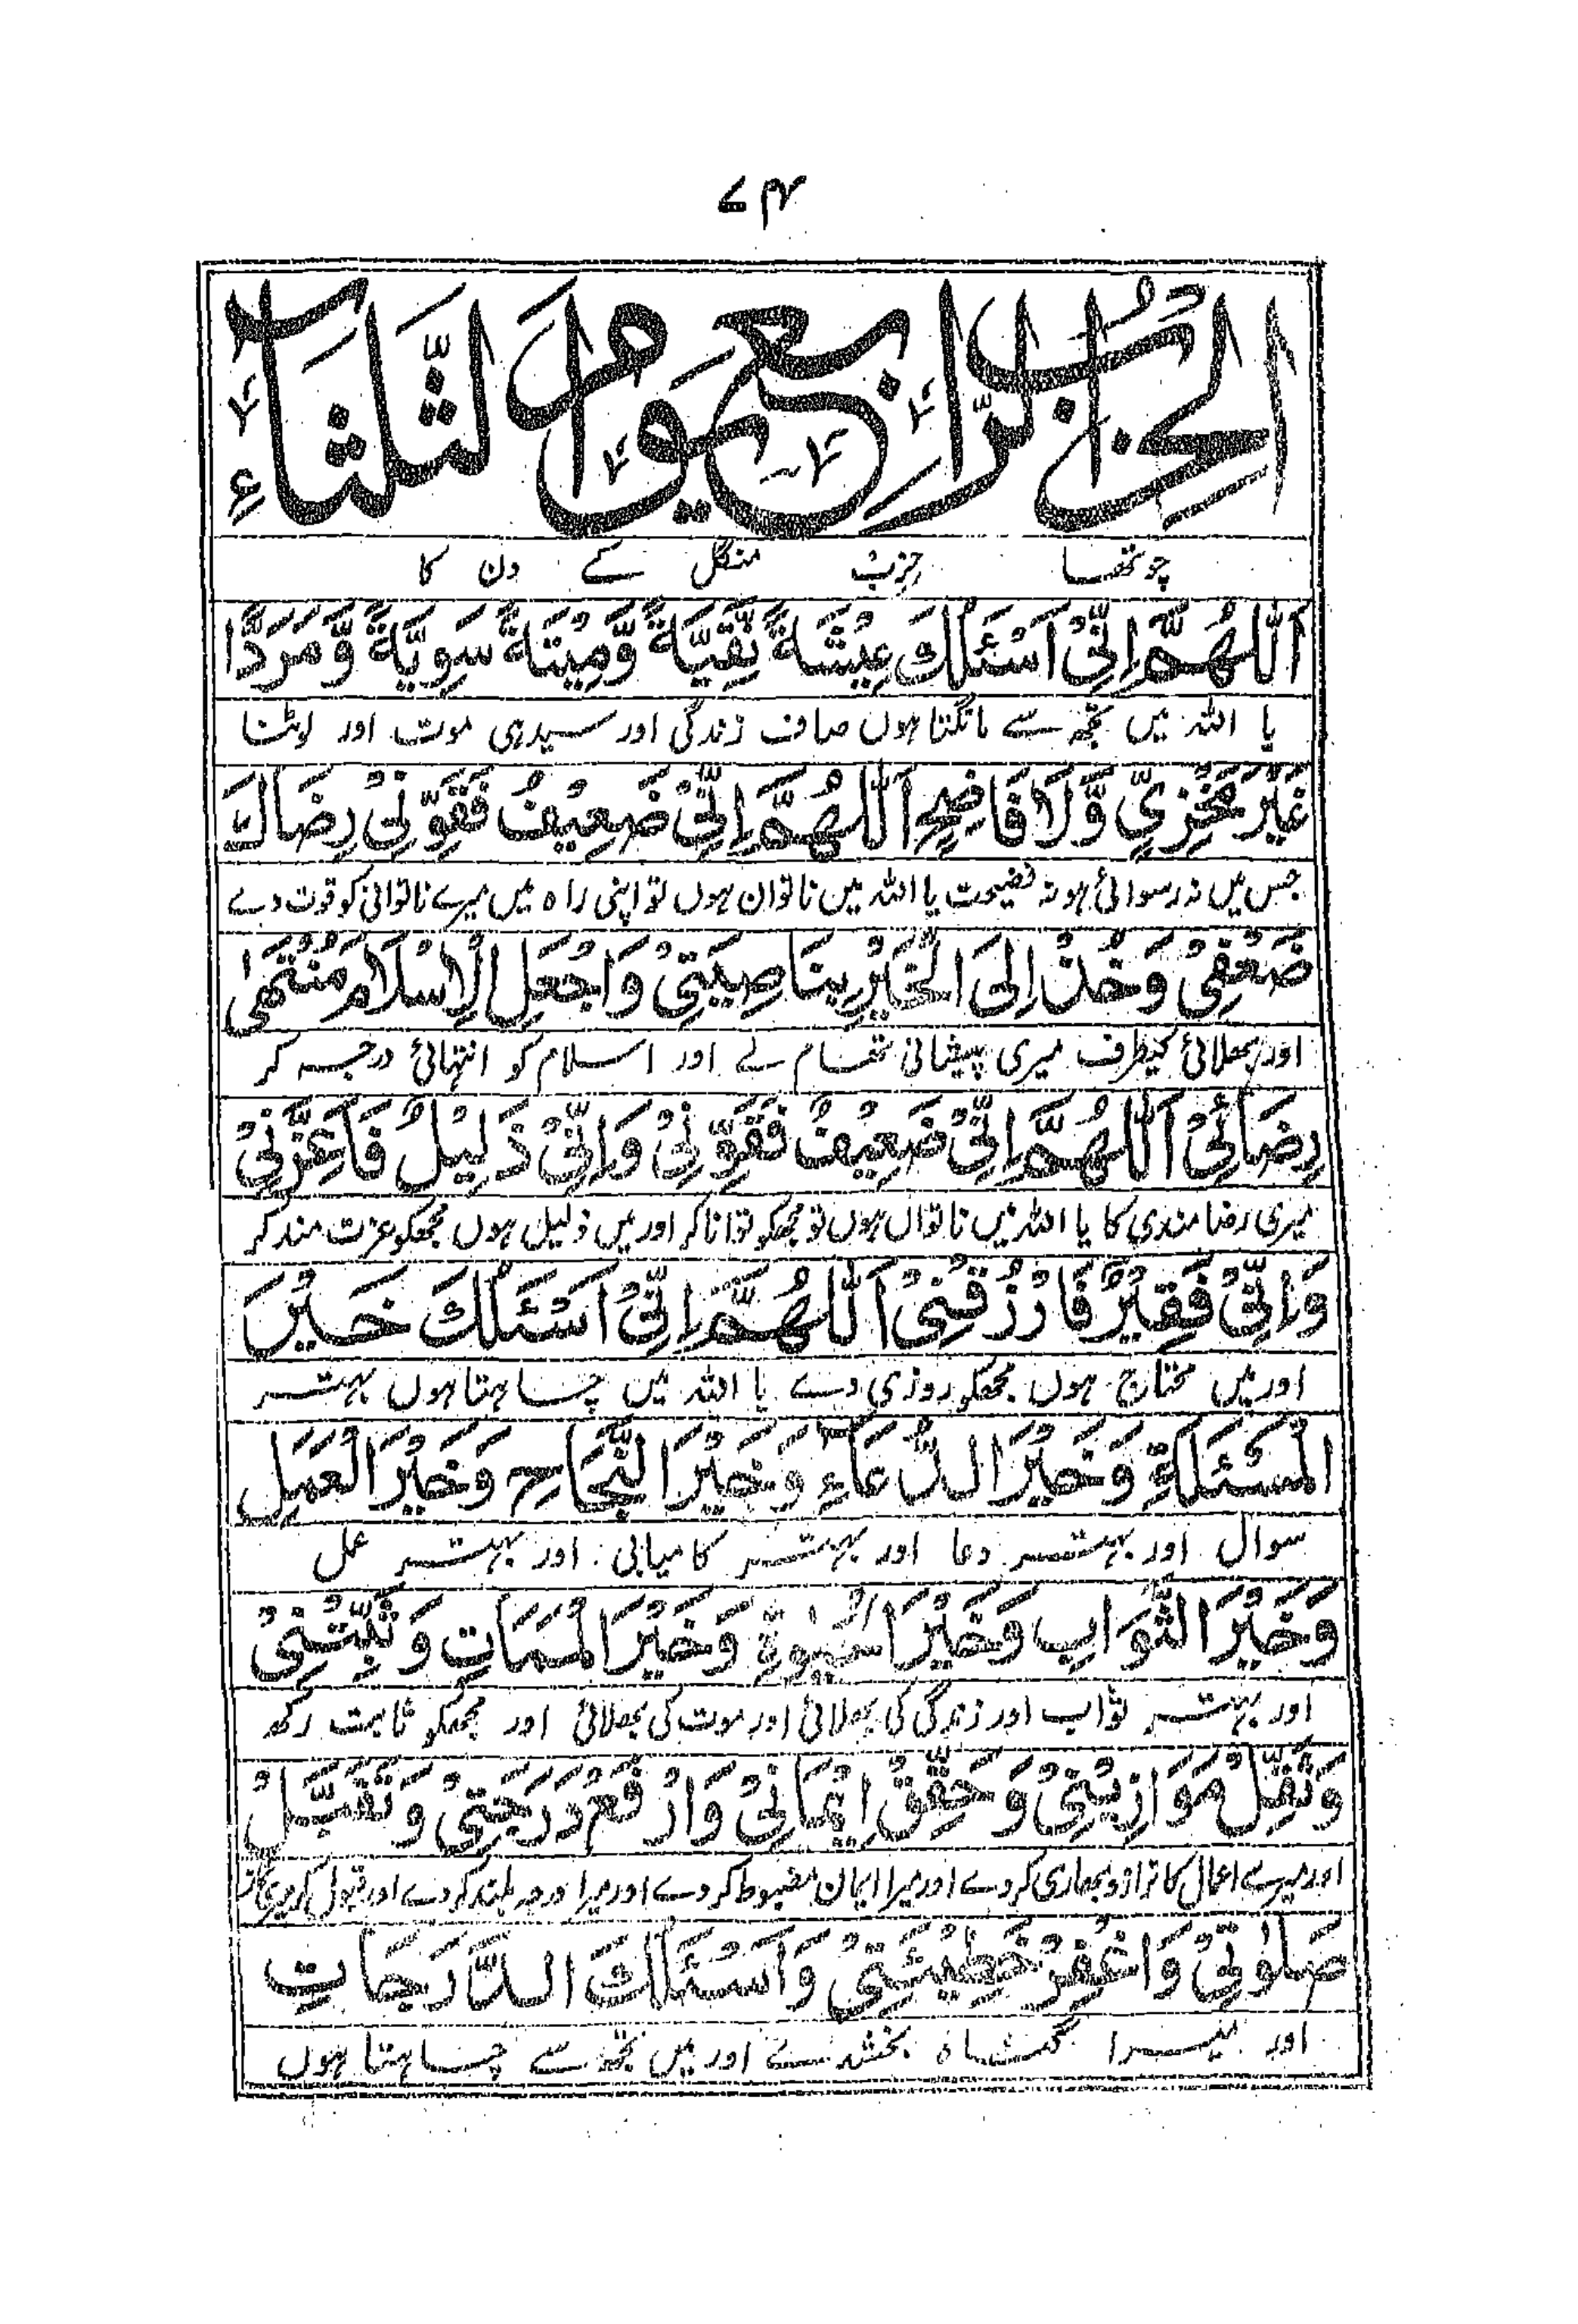 ۷۴
اَلْحِزْبُ الرَّابِعُ يَوْمَ الثَّلٰثَاءِ
چوتھا حزب منگل کے دن کا
اَللّٰهُمَّ اِنِّيْ اَسْئَلُكَ عِيْشَةً نَّقِيَّةً وَّمِيْتَةً سَوِيَّةً وَّمَرَدًّا
یا اللہ میں تجھ سے مانگتا ہوں صاف زندگی اور سیدہی موت اور لوٹنا
غَيْرَ مَخْزِيٍّ وَّلَا فَاضِحٍ اَللّٰهُمَّ اِنِّيْ ضَعِيْفٌ فَقَوِّنِيْ رِضَاكَ
جس میں نہ رسوائی ہو نہ فضیحت یا اللہ میں ناتوان ہوں تو اپنی راہ میں میرے ناتوانی کو قوت دے
ضَعْفِيْ وَخُذْ اِلَى الْخَيْرِ بِنَاصِيَتِيْ وَاجْعَلِ الْاِسْلَامَ مُنْتَهٰى
اور بھلائی کیطرف میری پیشانی تھام لے اور اسلام کو انتہائی درجہ کر
رِضَائِيْ اَللّٰهُمَّ اِنِّيْ ضَعِيْفٌ فَقَوِّنِيْ وَاِنِّيْ ذَلِيْلٌ فَاَعِزَّنِيْ
میری رضا مندی کا یا اللہ میں ناتواں ہوں تو مجھکو توانا کر اور میں ذلیل ہوں مجھکو عزت مند کر
وَاِنِّيْ فَقِيْرٌ فَارْزُقْنِيْ اَللّٰهُمَّ اِنِّيْ اَسْئَلُكَ خَيْرَ
اور میں محتاج ہوں مجھکو روزی دے یا اللہ میں چاہتا ہوں بہتر
الْمَسْئَلَةِ وَخَيْرَ الدُّعَاءِ وَخَيْرَ النَّجَاحِ وَخَيْرَ الْعَمَلِ
سوال اور بہتر دعا اور بہتر کامیابی اور بہتر عمل
وَخَيْرَ الثَّوَابِ وَخَيْرَ الْحَيٰوةِ وَخَيْرَ الْمَمَاتِ وَثَبِّتْنِيْ
اور بہتر ثواب اور زندگی کی بھلائی اور موت کی بھلائی اور مجھکو ثابت رکھ
وَثَقِّلْ مَوَازِيْنِيْ وَحَقِّقْ اِيْمَانِيْ وَارْفَعْ دَرَجَتِيْ وَتَقَبَّلْ
اور میرے اعمال کا ترازو بھاری کر دے اور میرا ایمان مضبوط کر دے اور میرا درجہ بلند کر دے اور قبول کر میری نماز
صَلٰوتِيْ وَاغْفِرْ خَطِيْئَتِيْ وَاَسْئَلُكَ الدَّرَجَاتِ
اور میرا گناہ بخشدے اور میں تجھ سے چاہتا ہوں